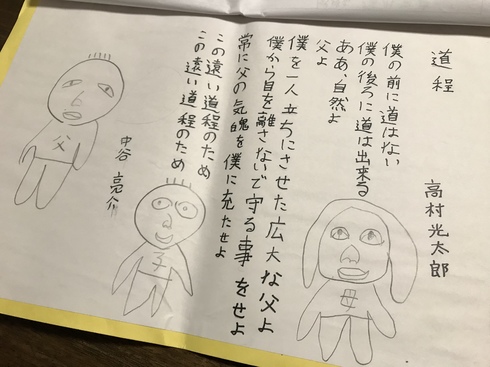 道程
高村光太郎
僕の前に道はない
僕の後ろに道は出来る
ああ、自然よ
父よ
僕を一人立ちにさせた広大な父よ
僕から目を離さないで守る事をせよ
常に父の気魄を僕に充たせよ
この遠い道程のため
この遠い道程のため
中谷亮介
父
子
母